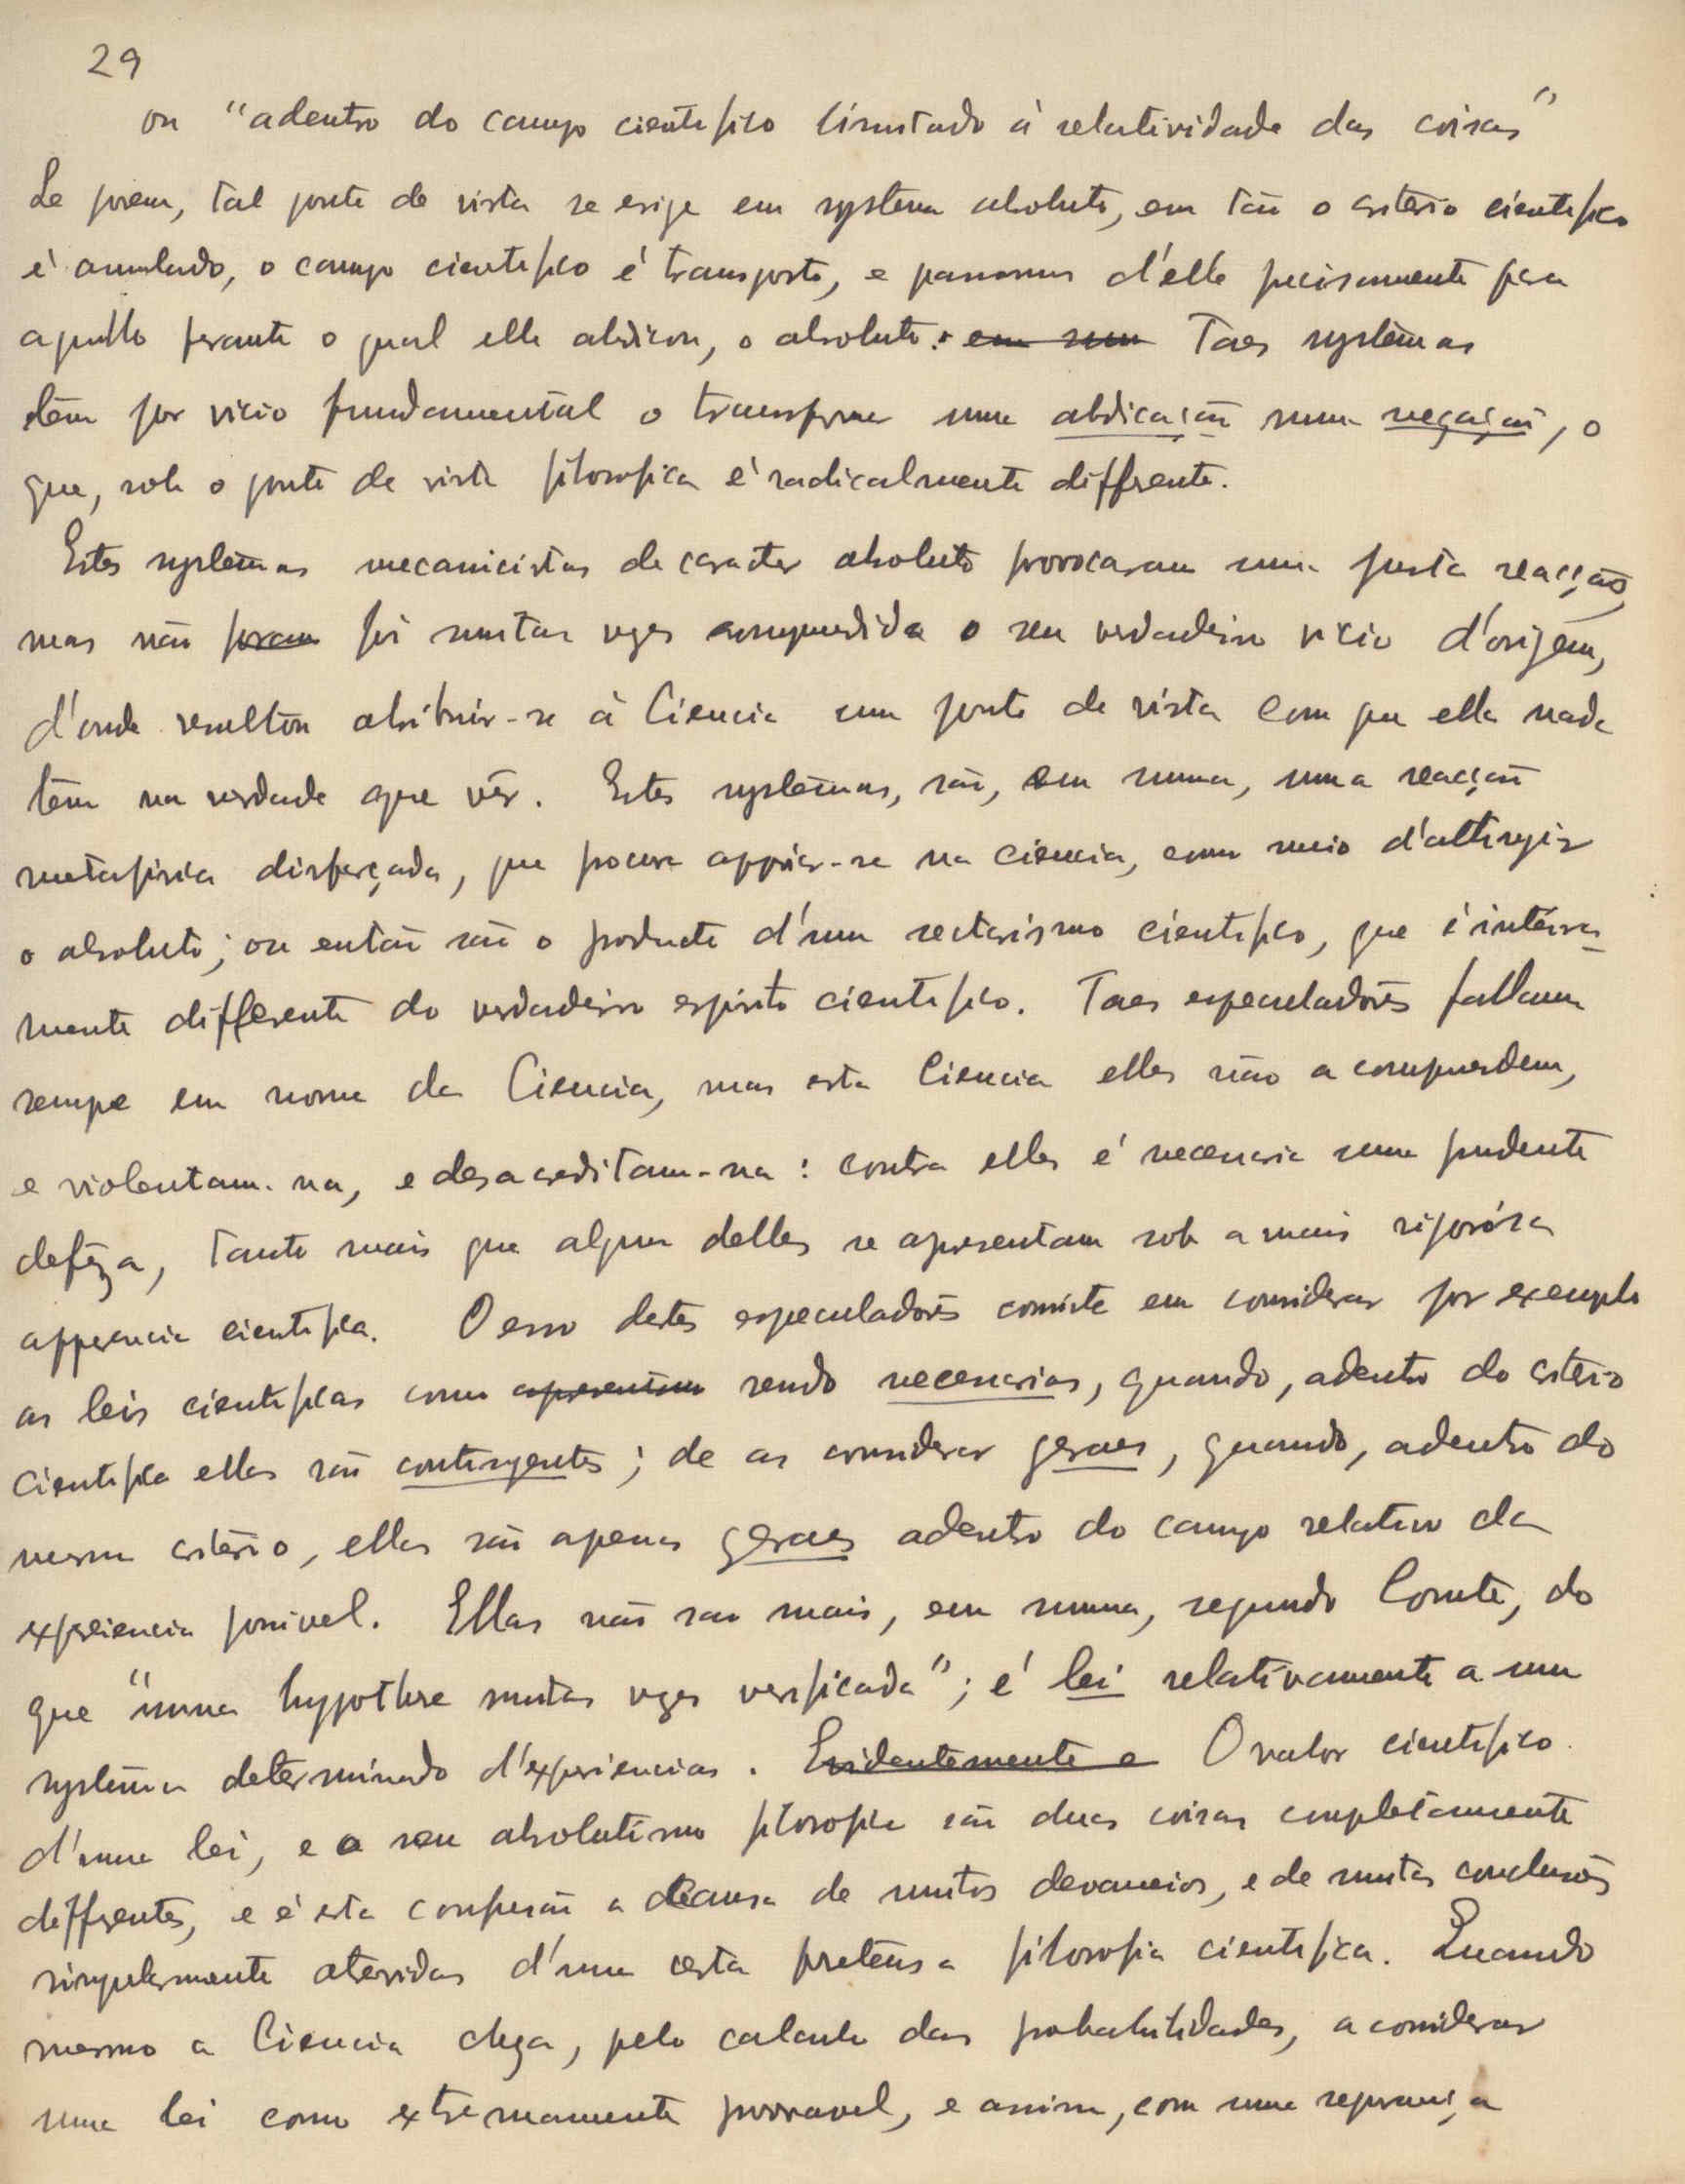 29
ou "adentro do campo cientifico limitado á relatividade das coisas"
Se porem, tal ponto de vista se erige em systema absoluto, em tão o critério cientifico
é anulado, o campo cientifico é transposto, e passamos d'elle precisamente para
aquillo perante o qual elle abdicou, o absoluto: em sum Taes systêmas
têm por vicio fundamental o transformar uma abdicação numa negação, o
que, sob o ponto de vista filosofico é radicalmente differente.
Estes systêmas mecanicistas de caracter absoluto provocaram uma justa reacção,
mas não foram foi muitas vezes comprendida o seu verdadeiro vicio d'origem,
d'onde resultou atribuir-se á Ciencia um ponto de vista com que ella nada
têm na verdade que vêr. Estes systêmas, são, em suma, uma reacção
metafisica disfarçada, que procura appoiar-se na ciencia, como meio d'attingir
o absoluto; ou então são o producto d'um sectarismo cientifico, que é inteira-
mente differente do verdadeiro espirito cientifico. Taes especuladôres fallam
sempre em nome da Ciencia, mas esta Ciencia elles não a comprendem,
e violentam-na, e desacreditam-na: contra elles é necessaria uma prudente
defêza, tanto mais que alguns delles se apresentam sob a mais rigorósa
apparencia cientifica. O erro destes especuladôres consiste em considerar por exemplo
as leis cientificas como apresentam sendo necessarias, quando, adentro do critério
cientifico ellas são contingentes; de as considerar geraes, quando, adentro do
mesmo critério, ellas são apenas geraes adentro do campo relativo da
experiencia possivel. Ellas não são mais, em summa, segundo Comte, do
que "uma hypothese muitas vezes verificada"; é lei relativamente a um
systêma determinado d'experiencias. Evidentemente o O valor cientifico
d'uma lei, e o seu absolutismo filosofico são duas coisas completamente
differentes, e é esta confusão a causa de muitos devaneios, e de muitas conclusões
singularmente atrevidas d'uma certa pretensa filosofia cientifica. Quando
mesmo a Ciencia chega, pelo calculo das probabilidades, a considerar
uma lei como extremamente provavel, e assim, com uma segurança